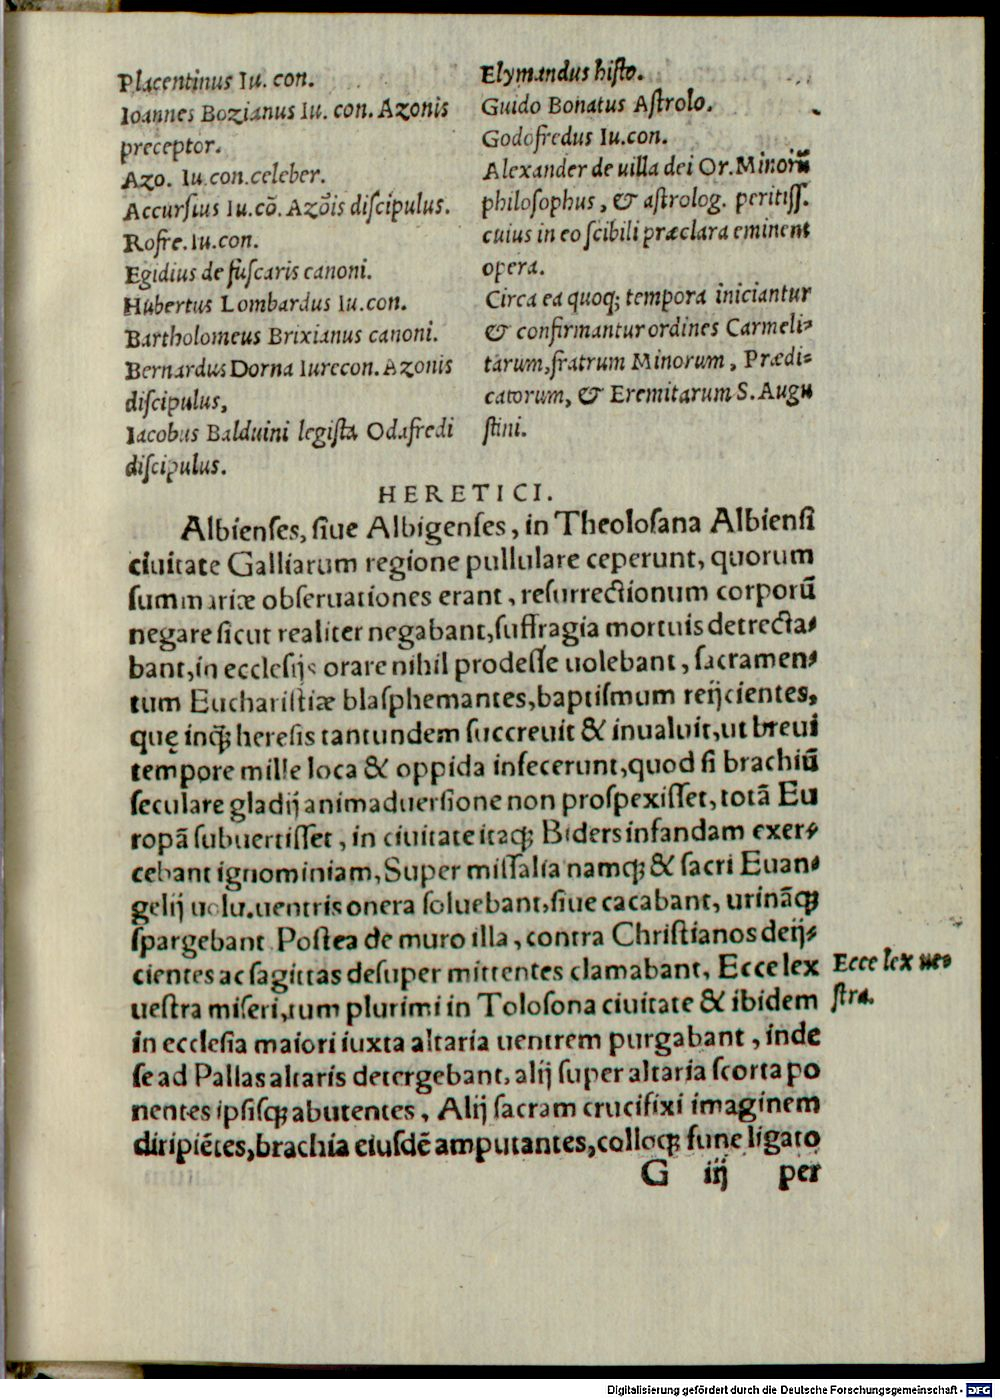 Placentinus Iu. con.
Ioannes Bozianus Iu. con. Azonis
preceptor.
Azo. Iu.con.celeber.
Accurſius Iu.cõ. Azõis diſcipulus.
Rofre. Iu.con.
Egidius de fuſcaris canoni.
Hubertus Lombardus Iu.con.
Bartholomeus Brixianus canoni.
Bernardus Dorna Iurecon. Azonis
diſcipulus,
Iacobus Balduini legiſta Odafredi
diſcipulus.
Elymandus hiſto.
Guido Bonatus Aſtrolo.
Godofredus Iu.con.
Alexander de uilla dei Or. Minorũ
philoſophus, & aſtrolog. peritiſſ.
cuius in eo ſcibili præclara eminent
opera.
Circa ea quoq; tempora iniciantur
& confirmantur ordines Carmeli⸗
tarum,fratrum Minorum, Prædi⸗
catorum, & Eremitarum S. Augu
ſtini.
HERETICI.
Albienſes, ſiue Albigenſes, in Theoloſana Albienſi
ciuitate Galliarum regione pullulare ceperunt, quorum
ſummariæ obſeruationes erant, reſurrectionum corporũ
negare ſicut realiter negabant,ſuffragia mortuis detrecta⸗
bant,in eccleſijs orare nihil prodeſſe uolebant, ſacramen⸗
tum Euchariſtiæ blaſphemantes,baptiſmum reijcientes,
quę inq̃; hereſis tantundem ſuccreuit & inualuit,ut breui
tempore mille loca & oppida infecerunt,quod ſi brachiũ
ſeculare gladij animaduerſione non proſpexiſſet, totã Eu
ropã ſubuertiſſet, in ciuitate itaq; Biders infandam exer⸗
cebant ignominiam, Super miſſalia namq; & ſacri Euan⸗
gelij uolu. uentris onera ſoluebant,ſiue cacabant, urinãq;
ſpargebant Poſtea de muro illa, contra Chriſtianos deij⸗
cientes ac ſagittas deſuper mittentes clamabant, Ecce lex
ueſtra miſeri,tum plurimi in Toloſona ciuitate & ibidem
in eccleſia maiori iuxta altaria uentrem purgabant, inde
ſe ad Pallas altaris detergebant, alij ſuper altaria ſcorta po
nentes ipſiſq; abutentes, Alij ſacram crucifixi imaginem
diripiẽtes,brachia eiuſdẽ amputantes,colloq; fune ligato
Ecce lex ue⸗
ſtra.
G iij per
Digitalisierung gefördert durch die Deutsche Forschungsgemeinschaft - DFG